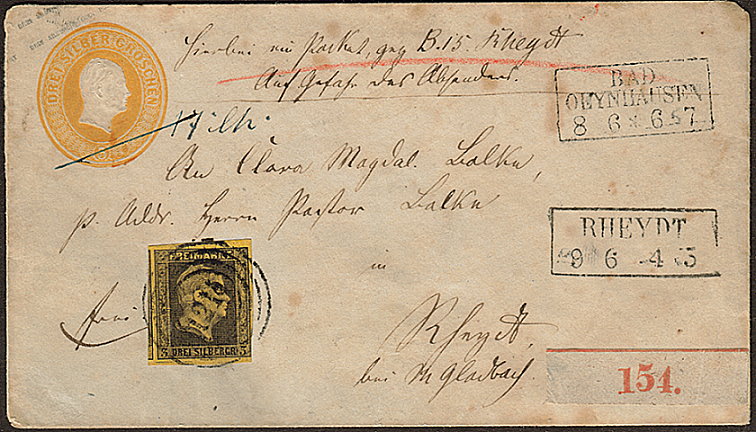 DREI SILBER GROSCHEN
Hierbei ein Packet, gez B.15. Rheydt
Auf Gefahr des Absenders.
BAD
OEYNHAUSEN
8 6 * 6 57
An Clara Magdal. Balke,
p. Addr. Herrn Pastor Balke
in
Rheydt,
bei M Gladbach.
RHEYDT
9 6 4-5
FREIMARKE
3 DREI SILBERGR. 3
frei
154.